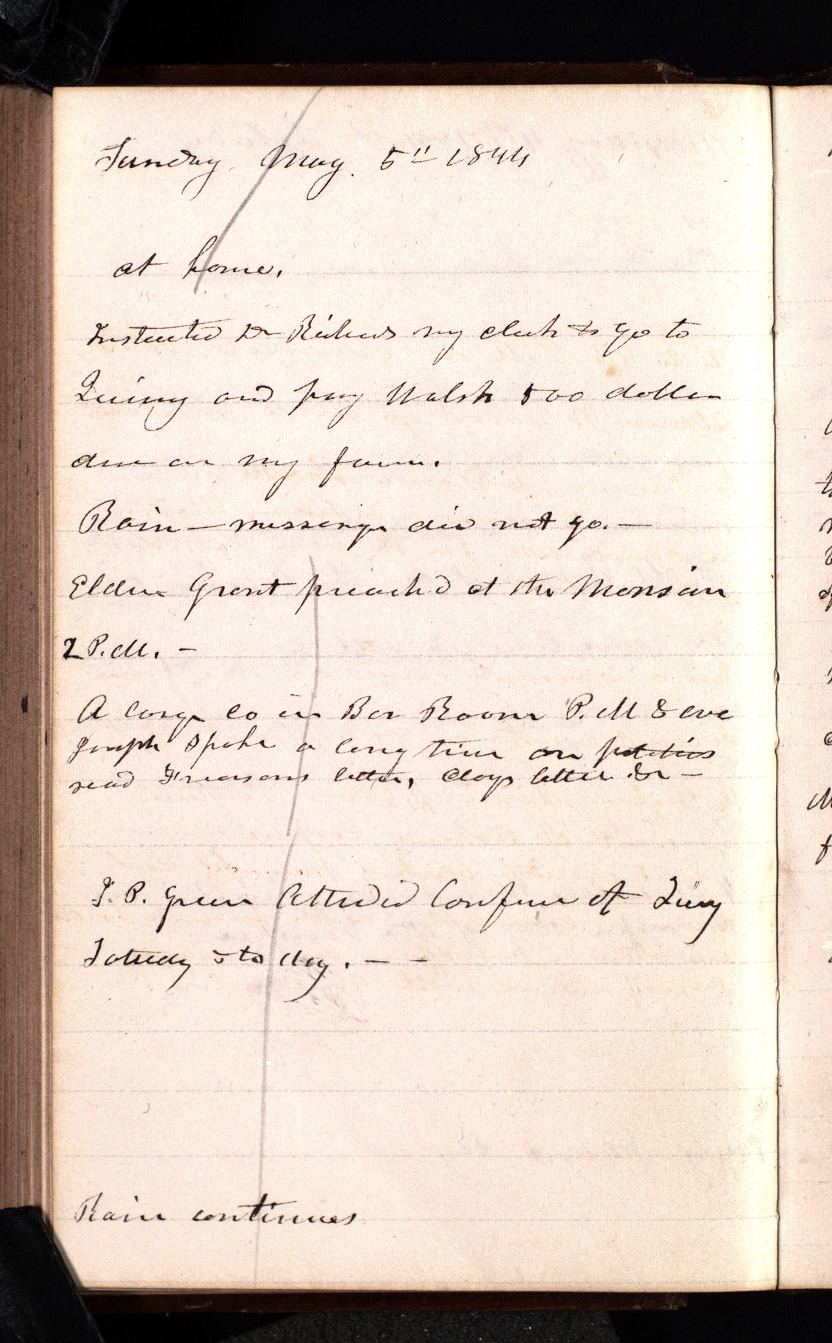 Sunday May. 5th 1844
at home.
Instructed Dr Richards my clerk to go to
Quincy and pay Walsh 500 dollars
due on my farm.
Rain — messenger did not go. —
Elder Grant preached at the Mansion
2 P.M. —
A large co in Bar Room P.M & eve
Joseph spoke a long time on petitios
read Freirsons letter, Clays letter &c —
J. P. Green Attended Confrnce at Quincy
Saturdy & to day. — —
Rain continues